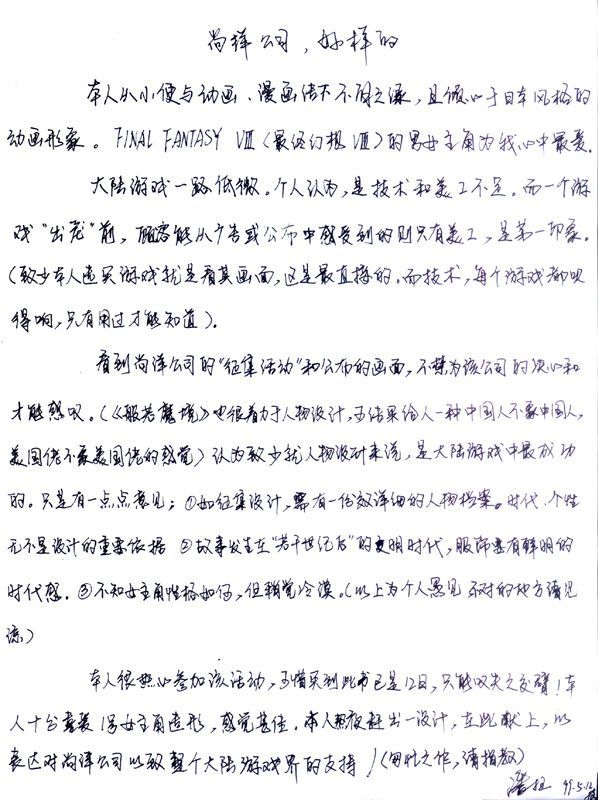 尚洋公司，好样的
本人从小便与动画、漫画结下不解之缘，且倾心于日本风格的
动画形象。FINAL FANTASY VIII（最终幻想VIII）的男女主角为我心中最爱。
大陆游戏一路低微。个人认为，是技术和美工不足。而一个游
戏“出茏”前，顾客能从广告或公布中感受到的则只有美工，是第一印象。
（致少本人选买游戏就是看其画面，这是最直接的。而技术，每个游戏都叹
得响，只有用过才能知道）。
看到尚洋公司的“征集活动”和公布的画面，不禁为该公司的决心和
才能感叹。（《般若魔境》也很着力于人物设计，可结果给人一种中国人不象中国人，
美国佬不象美国佬的感觉）认为致少就人物设计来说，是大陆游戏中最成功
的。只是有一点点意见；①如征集设计，需有一份较详细的人物档案。时代、个性
无不是设计的重要依据 ②故事发生在“若干世纪后”的文明时代，服饰要有鲜明的
时代感。③不知女主角性格如何，但稍觉冷漠。（以上为个人愚见 不对的地方请见
谅）
本人很热心参加该活动，可惜买到此书已是12日，只能叹失之交臂！本
人十分喜爱1号女主角造形，感觉甚佳。本人想夜赶出一设计，在此献上，以
表达对尚洋公司以致整个大陆游戏界的支持！（匆忙之作，请指教）
99.5.12